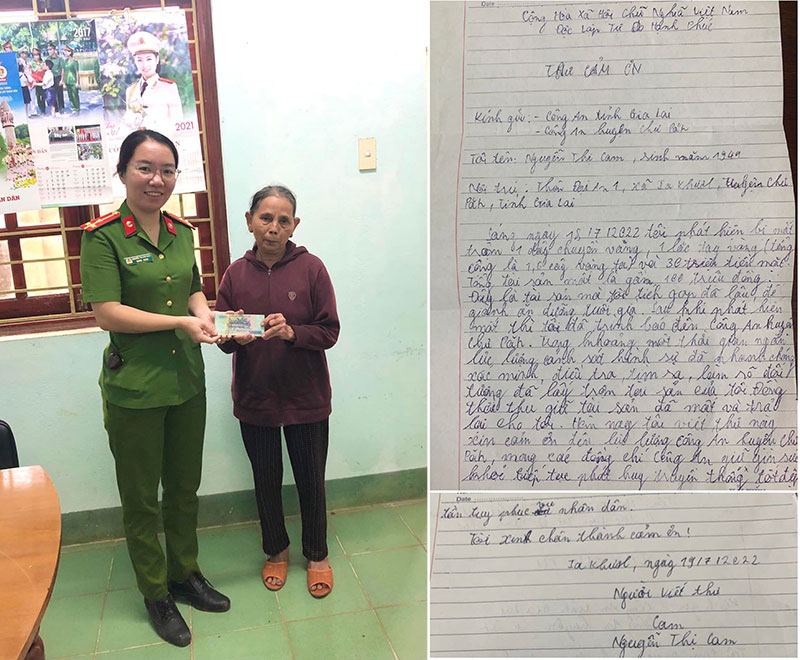 2017
2021
ÂN DÂN
Date
Cộng Hòa Xã Hội Chủ Nghĩa Việt Nam
Độc Lập Tự Do Hạnh Phúc
THƯ CẢM ƠN
Kính gửi: - Công An tỉnh Gia Lai
- Công An huyện Chư Păh
Tôi tên: Nguyễn Thị Cam, sinh năm 1949
Nơi trú: Thôn 1, xã Ia Khươl, Huyện Chư
Păh, Tỉnh Gia Lai
Sáng ngày 15/7/2022 tôi phát hiện bị mất
trộm 1 dây chuyền vàng, 1 lắc tay vàng (tổng
cộng là 1,5 cây vàng ta) và 30 triệu tiền mặt.
Tổng tài sản mất là gần 100 triệu đồng.
Đây là tài sản mà tôi tích góp đã lâu để
giành an dưỡng tuổi già. Sau khi phát hiện
mất thì tôi đã trình báo đến Công An huyện
Chư Păh. Trong khoảng một thời gian ngắn
lực lượng cảnh sát hình sự đã nhanh chóng
xác minh, điều tra, tìm ra, làm rõ đối
tượng đã lấy trộm tài sản của tôi. Đồng
thời thu giữ tài sản đã mất và trả
lại cho tôi. Hôm nay tôi viết thư này
xin cảm ơn đến lực lượng công An huyện Chư
Păh, mong các đồng chí Công An giữ gìn sức
khỏe tiếp tục phát huy truyền thống tốt đẹp
Date
tận tụy phục vụ nhân dân.
Tôi xin chân thành cảm ơn!
Ia Khươl, ngày 19/7/2022
Người viết thư
Cam
Nguyễn Thị Cam